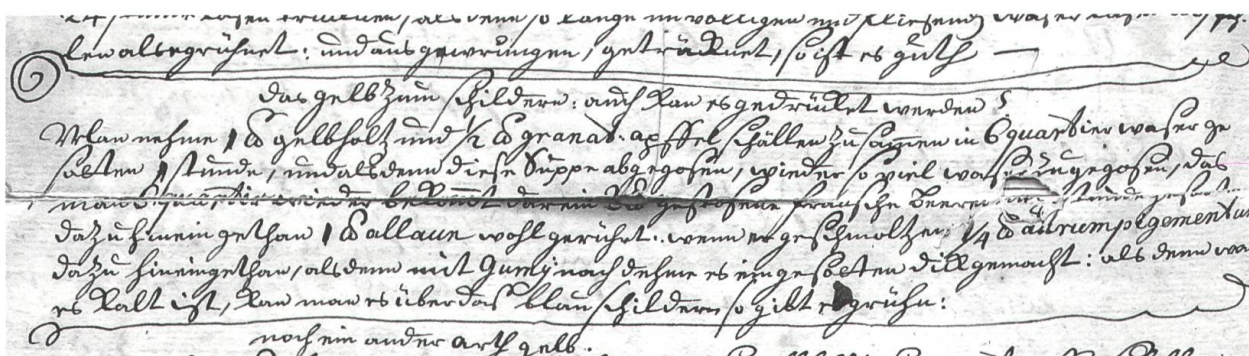 24 stunde laßen so lange im völligen und fließend waßer
len als gegrühnet: und aus gewrungen, getrücknet, so ist es guth
das gelb zum schildern: auch kan es gedrücket werden
Man nehme 1 ℔ gelbholtz und ½ ℔ granat: apffel schällen zusamen in 6 quartier waßer ge
soltten 1 stunde, und als denn diese Suppe abgegoßen, wieder so viel waßer zu gegoßen, das
man wieder bekomt darein ℔ gestoßene fransche beeren stunde
dazu hinein gethan 1 ℔ allaun wohl gerührt: wenn er geschmoltzen ¼ ℔ aurumpigmentum
dazu hineingethan, als denn mit Gumÿ nach dehme es eingesotten dick gemacht: als denn
es kalt ist, kan man es über das blau schildern so gibt es grühn:
noch ein ander arth gelb.